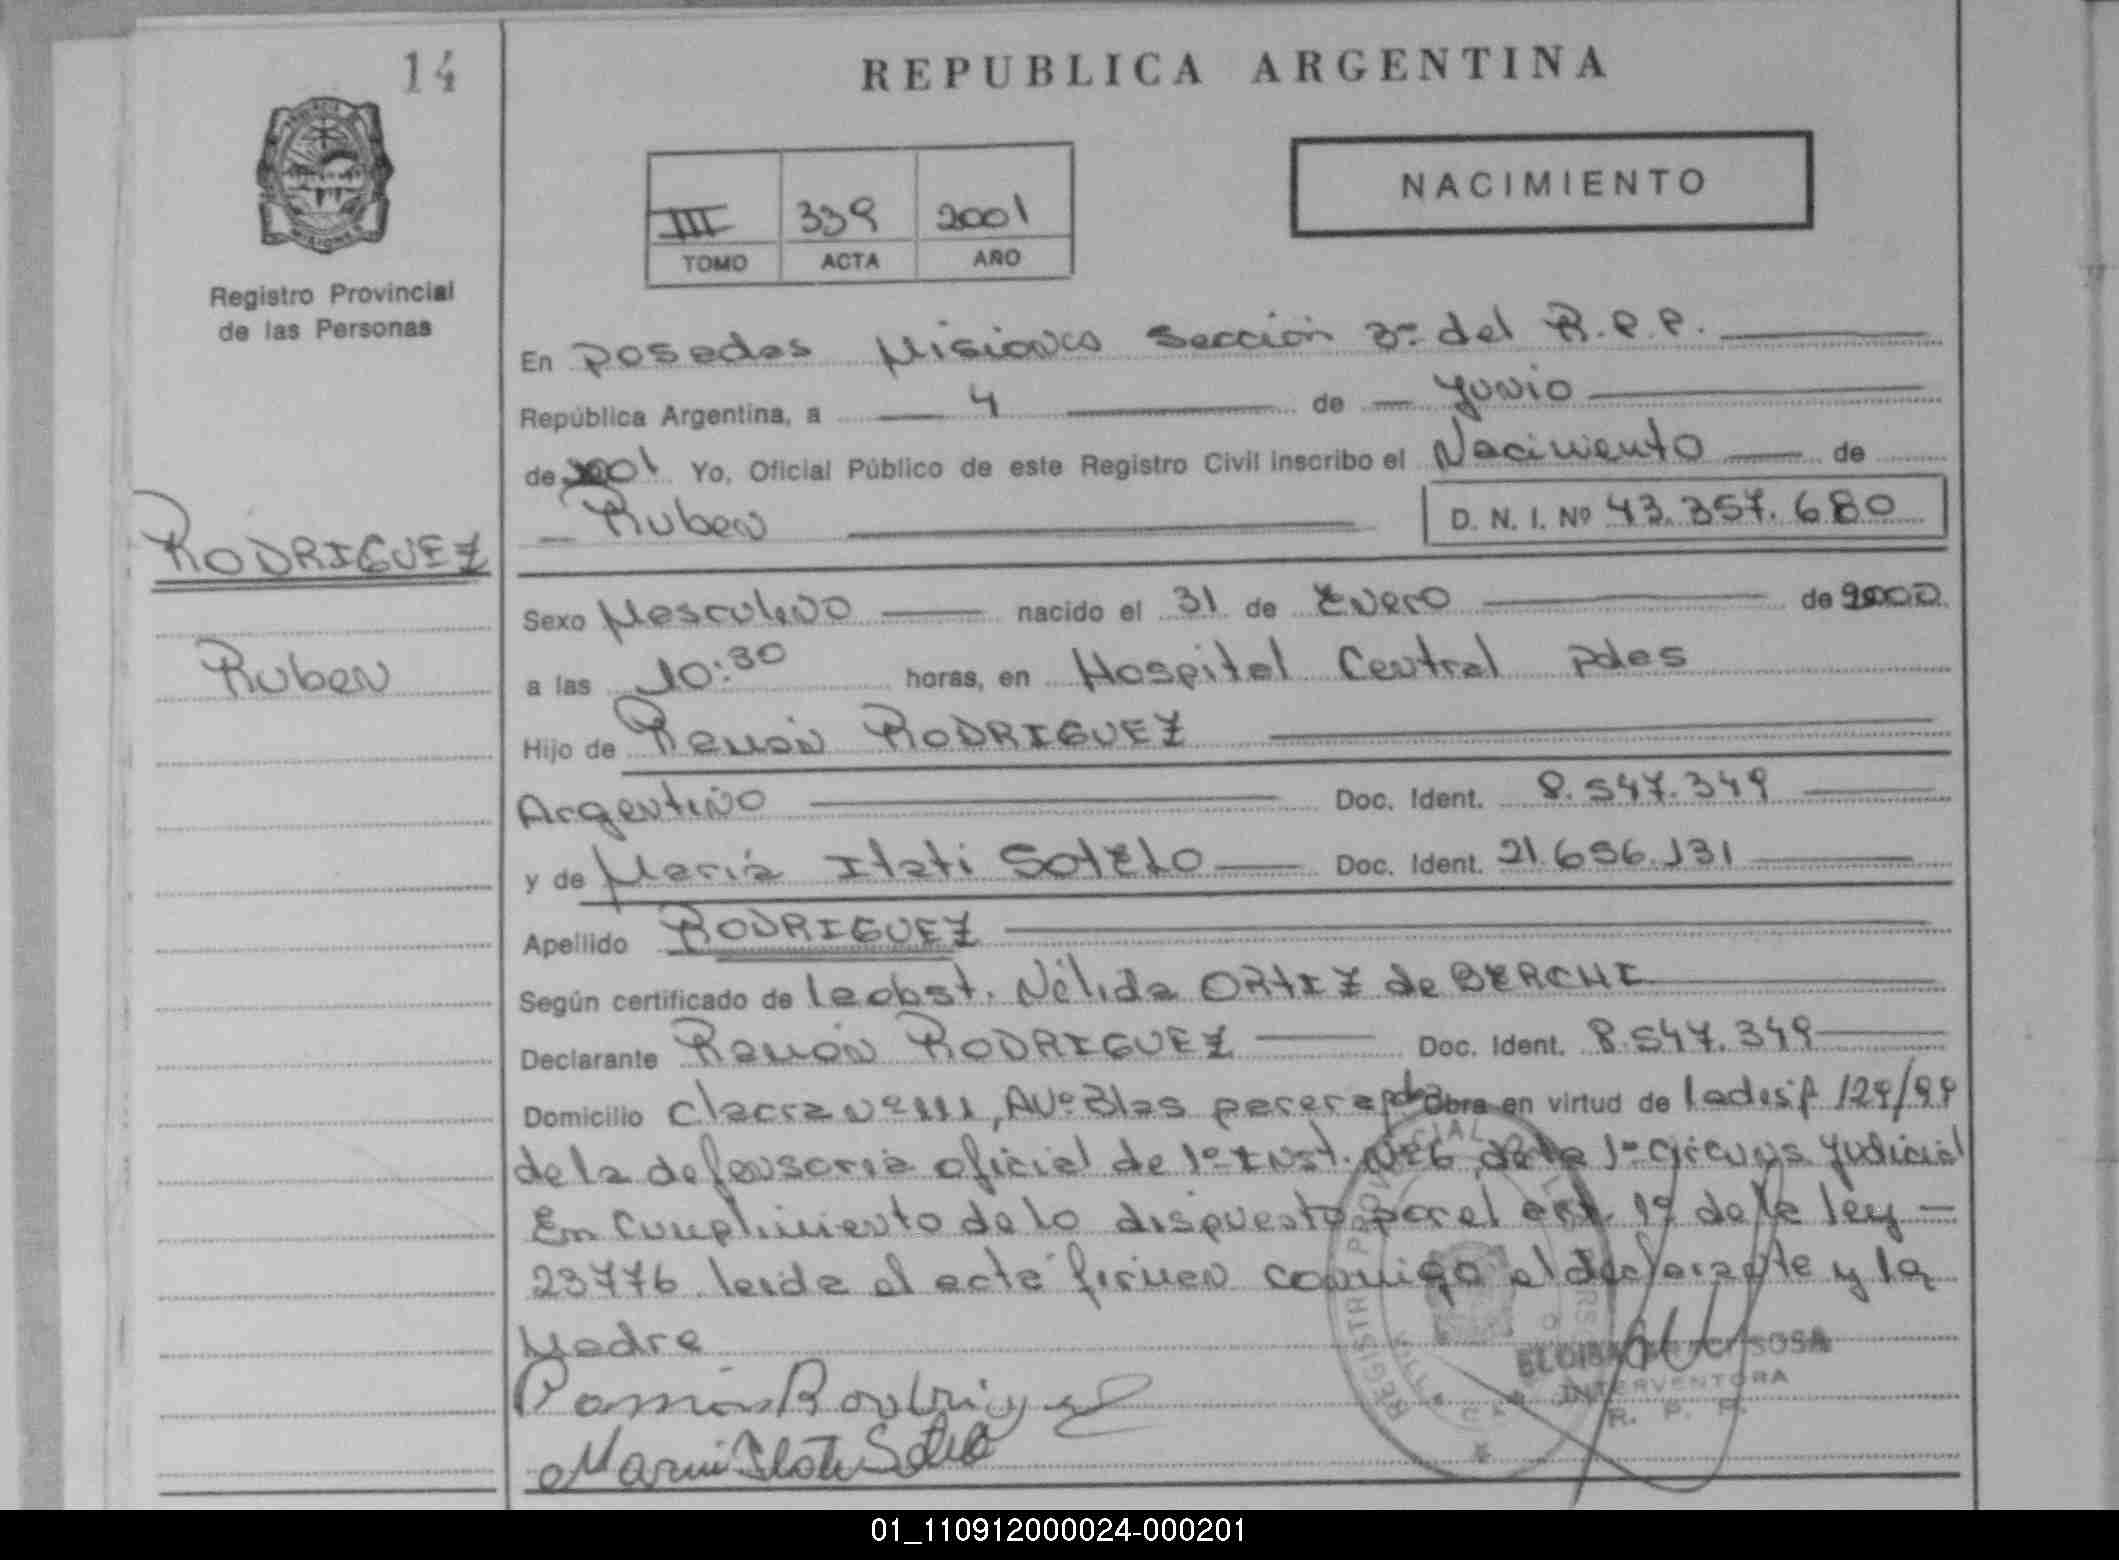 14
REPUBLICA ARGENTINA
PROVINCIA
MISIONES
NACIMIENTO
III 339 2001
TOMO ACTA AÑO
Registro Provincial
de las Personas
En Posadas Misiones Sección 3º del R.P.P.
República Argentina, a 4 de Junio
de 2001 Yo, Oficial Público de este Registro Civil inscribo el Nacimiento de
Ruben D. N. I. Nº 43.357.680
RODRIGUEZ
Ruben
Sexo Masculino nacido el 31 de Enero de 2000
a las 10:30 horas, en Hospital Central Pdas
Hijo de Ramón RODRIGUEZ
Argentino Doc. Ident. 8.547.349
y de María Itati SOTELO Doc. Ident. 21.656.131
Apellido RODRIGUEZ
Según certificado de la obst. Nélida ORTIZ de BERCHI
Declarante Ramón RODRIGUEZ Doc. Ident. 8.547.349
Domicilio chacra nº 111, Avº Blas parera pdas Obra en virtud de la
de la defensoria oficial de 1º Inst. Nº 6 de la 1º Judicial
En cumplimiento de lo dispuesto por el art. 1º de la ley
23776 leida el acta firman conmigo el declarante y la
Madre
Ramón Rodriguez
Maria Itati Sotelo
SOSA
INTERVENTORA
R. P. P.
01_110912000024-000201